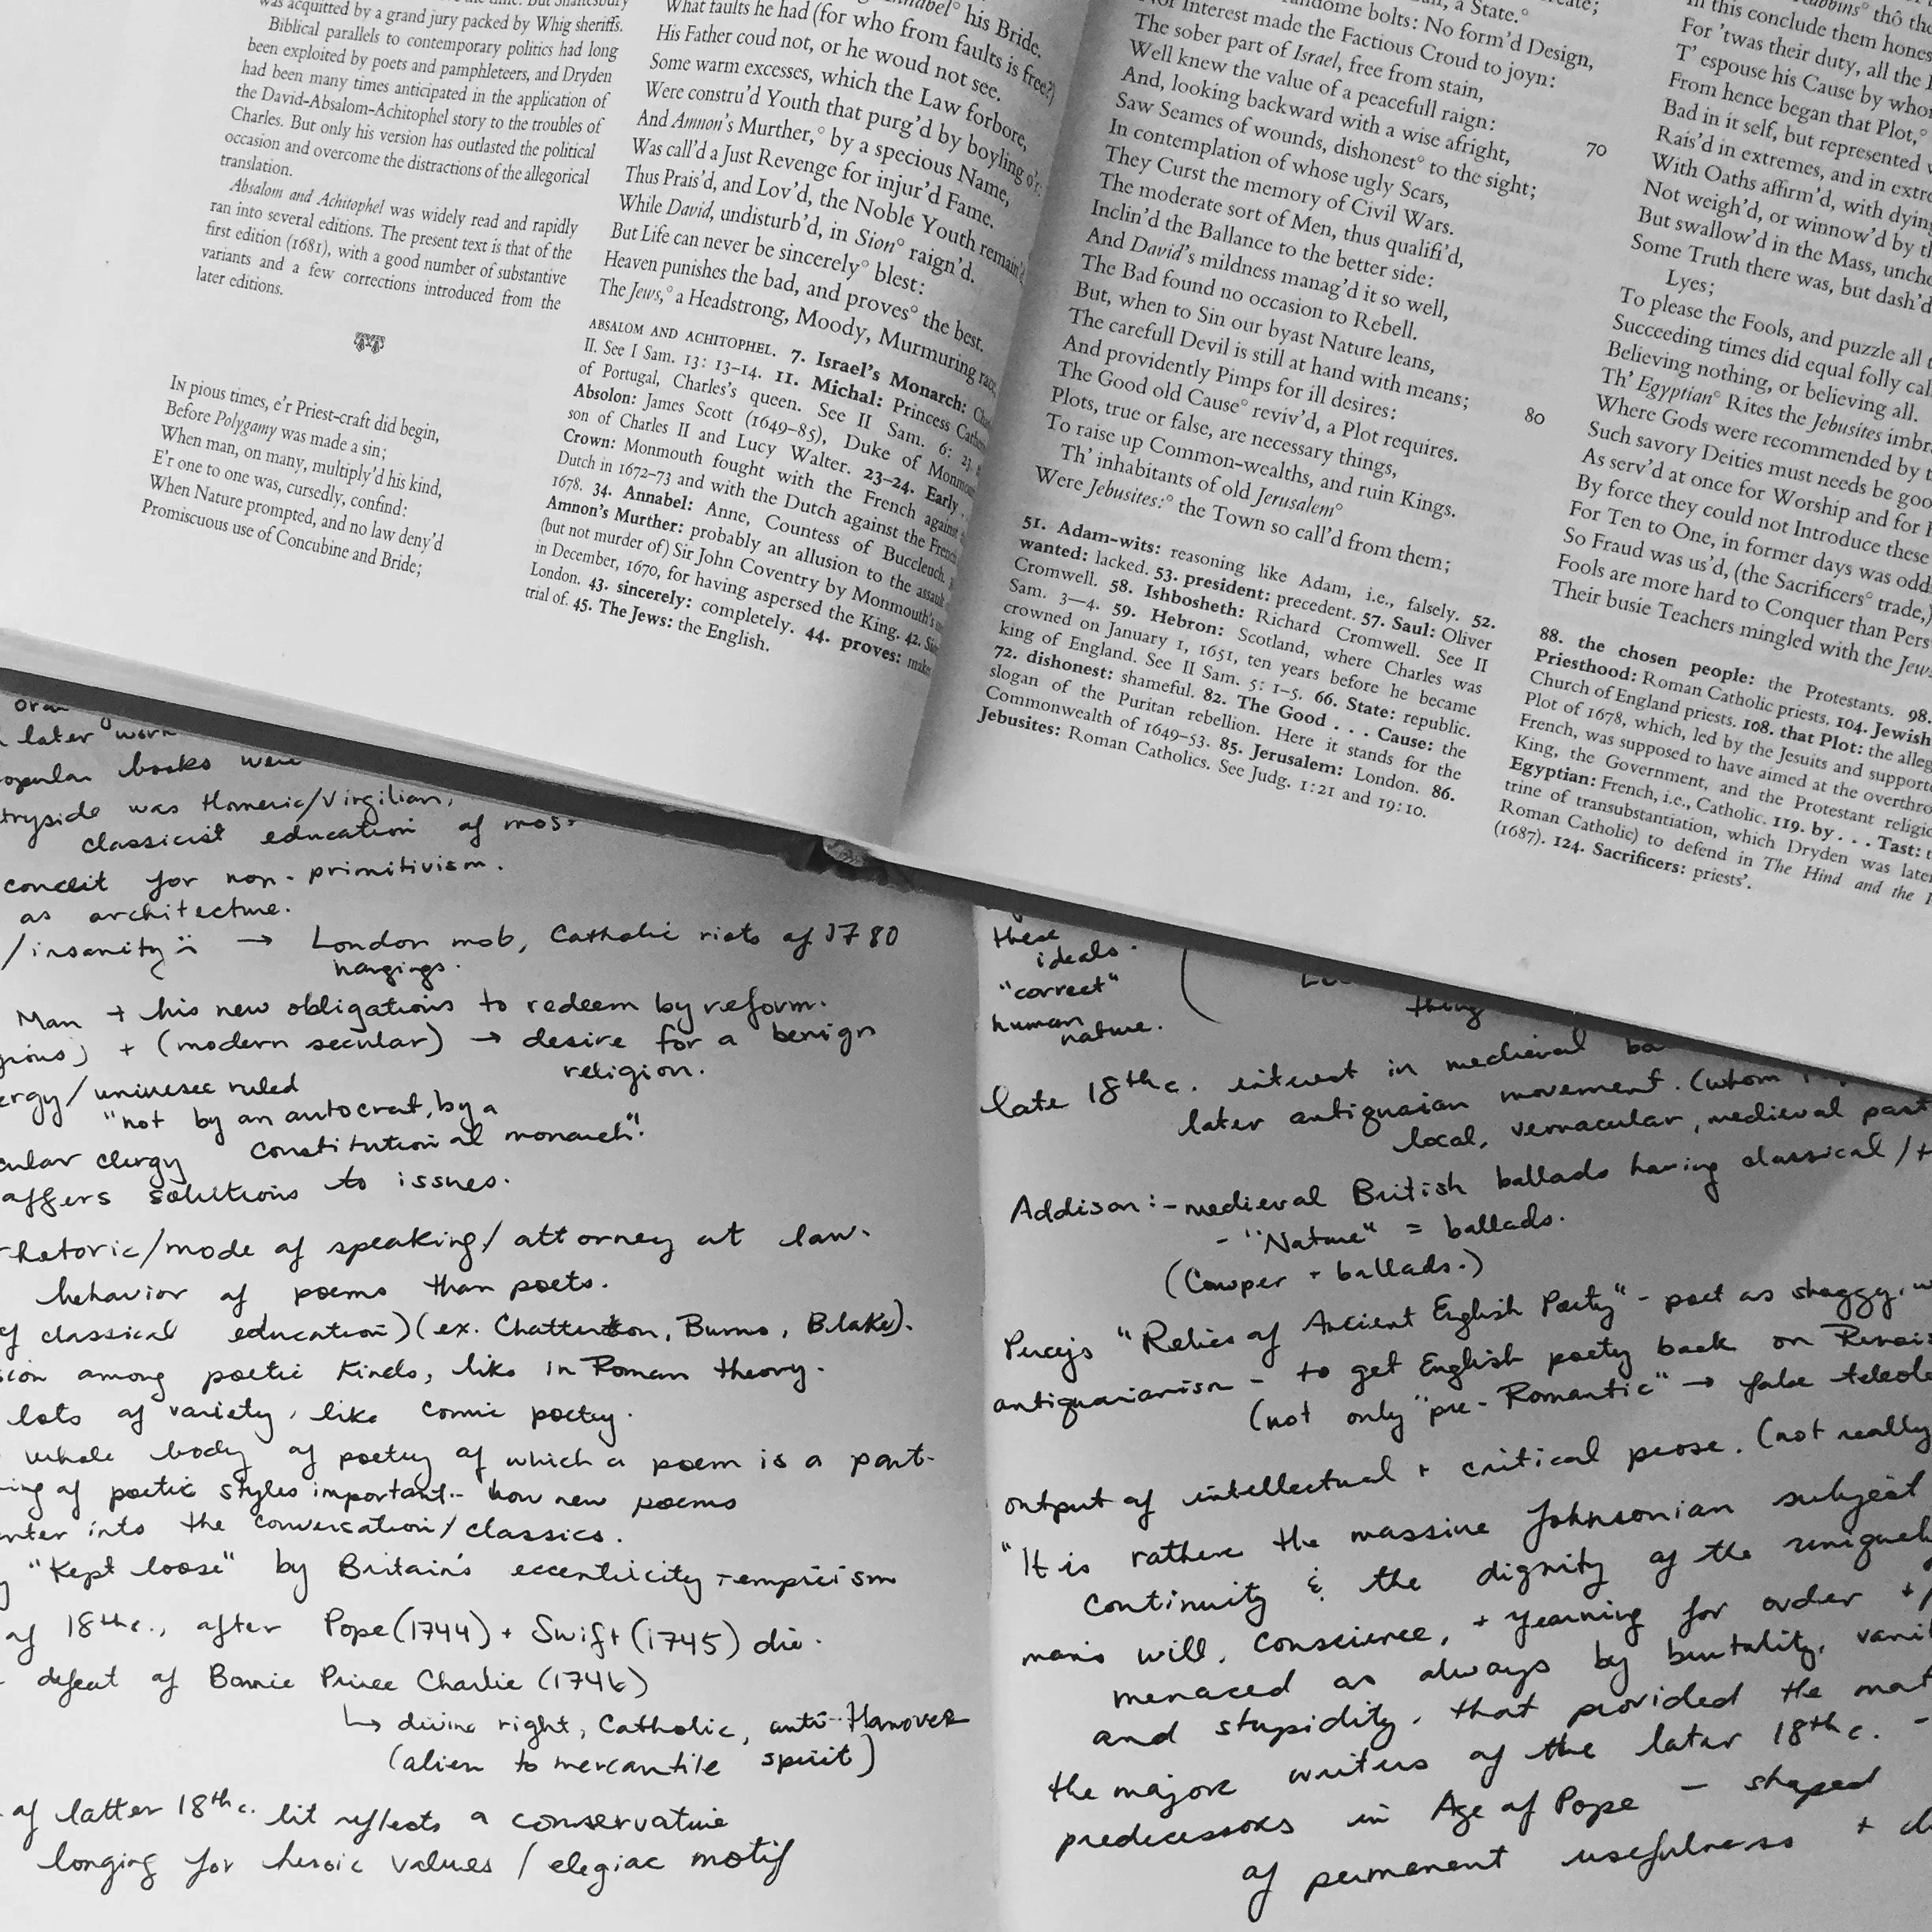 was acquitted by a grand jury packed by Whig sheriffs.
Biblical parallels to contemporary politics had long
been exploited by poets and pamphleteers, and Dryden
had been many times anticipated in the application of
the David-Absalom-Achitophel story to the troubles of
Charles. But only his version has outlasted the political
occasion and overcome the distractions of the allegorical
translation.
Absalom and Achitophel was widely read and rapidly
ran into several editions. The present text is that of the
first edition (1681), with a good number of substantive
variants and a few corrections introduced from the
later editions.
In pious times, e'r Priest-craft did begin,
Before Polygamy was made a sin;
When man, on many, multiply'd his kind,
E'r one to one was, cursedly, confind:
When Nature prompted, and no law deny'd
Promiscuous use of Concubine and Bride;
his Bride.
What faults he had (for who from faults is free?)
His Father coud not, or he woud not see.
Some warm excesses, which the Law forbore,
Were constru'd Youth that purg'd by boyling o'r:
And Amnon's Murther,° by a specious Name,
Was call'd a Just Revenge for injur'd Fame.
Thus Prais'd, and Lov'd, the Noble Youth remain'd
While David, undisturb'd, in Sion° raign'd.
But Life can never be sincerely° blest:
Heaven punishes the bad, and proves° the best.
The Jews,° a Headstrong, Moody, Murmuring race,
ABSALOM AND ACHITOPHEL. 7. Israel's Monarch:
II. See I Sam. 13: 13–14. 11. Michal: Princess
of Portugal, Charles's queen. See II Sam. 6: 23.
Absolon: James Scott (1649–85), Duke of
son of Charles II and Lucy Walter. 23–24. Early
Crown: Monmouth fought with the French against
Dutch in 1672–73 and with the Dutch against the French
1678. 34. Annabel: Anne, Countess of Buccleuch.
Amnon's Murther: probably an allusion to the assault
(but not murder of) Sir John Coventry by Monmouth's
in December, 1670, for having aspersed the King. 42.
London. 43. sincerely: completely. 44. proves:
trial of. 45. The Jews: the English.
a State.°
bolts: No form'd Design,
Nor Interest made the Factious Croud to joyn:
The sober part of Israel, free from stain,
Well knew the value of a peacefull raign:
And, looking backward with a wise afright,
Saw Seames of wounds, dishonest° to the sight;
In contemplation of whose ugly Scars,
They Curst the memory of Civil Wars.
The moderate sort of Men, thus qualifi'd,
Inclin'd the Ballance to the better side:
And David's mildness manag'd it so well,
The Bad found no occasion to Rebell.
But, when to Sin our byast Nature leans,
The carefull Devil is still at hand with means;
And providently Pimps for ill desires:
The Good old Cause° reviv'd, a Plot requires.
Plots, true or false, are necessary things,
To raise up Common-wealths, and ruin Kings.
Th' inhabitants of old Jerusalem°
Were Jebusites:° the Town so call'd from them;
70
80
51. Adam-wits: reasoning like Adam, i.e., falsely. 52.
wanted: lacked. 53. president: precedent. 57. Saul: Oliver
Cromwell. 58. Ishbosheth: Richard Cromwell. See II
Sam. 3–4. 59. Hebron: Scotland, where Charles was
crowned on January 1, 1651, ten years before he became
king of England. See II Sam. 5: 1–5. 66. State: republic.
72. dishonest: shameful. 82. The Good . . . Cause: the
slogan of the Puritan rebellion. Here it stands for the
Commonwealth of 1649–53. 85. Jerusalem: London. 86.
Jebusites: Roman Catholics. See Judg. 1:21 and 19:10.
thô
In this conclude them
For 'twas their duty, all the
T' espouse his Cause by
From hence began that Plot,°
Bad in it self, but represented
Rais'd in extremes, and in
With Oaths affirm'd, with dying
Not weigh'd, or winnow'd by
But swallow'd in the Mass,
Some Truth there was, but dash'd
Lyes;
To please the Fools, and puzzle all
Succeeding times did equal folly
Believing nothing, or believing all.
Th' Egyptian° Rites the Jebusites
Where Gods were recommended by
Such savory Deities must needs be
As serv'd at once for Worship and for
By force they could not Introduce these
For Ten to One, in former days was odd
So Fraud was us'd, (the Sacrificers° trade,)
Fools are more hard to Conquer than
Their busie Teachers mingled with the
88. the chosen people: the Protestants. 98.
Priesthood: Roman Catholic priests. 104. Jewish
Church of England priests. 108. that Plot: the
Plot of 1678, which, led by the Jesuits and
French, was supposed to have aimed at the
King, the Government, and the Protestant
Egyptian: French, i.e., Catholic. 119. by . . . Tast:
trine of transubstantiation, which Dryden was
Roman Catholic) to defend in The Hind and the
(1687). 124. Sacrificers: priests'.
later work
books were
was Homeric/Virgilian,
classicist education of most
conceit for non-primitivism.
as architecture.
/insanity → London mob, Catholic riots of 1780
hangings.
Man + his new obligations to redeem by reform.
+ (modern secular) → desire for a benign
religion.
ruled
"not by an autocrat, by a
constitutional monarch".
clergy
offers solutions to issues.
rhetoric/mode of speaking/attorney at law.
behavior of poems than poets.
of classical education) (ex. Chatterton, Burns, Blake).
among poetic kinds, like in Roman theory.
lots of variety, like comic poetry.
whole body of poetry of which a poem is a part.
of poetic styles important - how new poems
enter into the conversation/classics.
"Kept loose" by Britain's eccentricity + empiricism
of 18th c., after Pope (1744) + Swift (1745) die.
defeat of Bonnie Prince Charlie (1746)
↳ divine right, Catholic, anti-Hanover
(alien to mercantile spirit)
of latter 18th c. lit reflects a conservative
longing for heroic values / elegiac motif
these
ideals.
"correct"
human
nature.
thing
late 18th c. interest in medieval
later antiquarian movement. (whom
local, vernacular, medieval past
Addison: - medieval British ballads having classical /
- "Nature" = ballads.
(Cowper + ballads.)
Percy's "Relics of Ancient English Poetry" - poet as shaggy,
antiquarianism - to get English poetry back on
(not only "pre-Romantic" → false
output of intellectual + critical prose. (not really
"It is rather the massive Johnsonian subject
continuity & the dignity of the
man's will, conscience, + yearning for order +
menaced as always by brutality,
and stupidity, that provided the
the major writers of the later 18th c. -
predecessors in Age of Pope - shaped
of permanent usefulness +